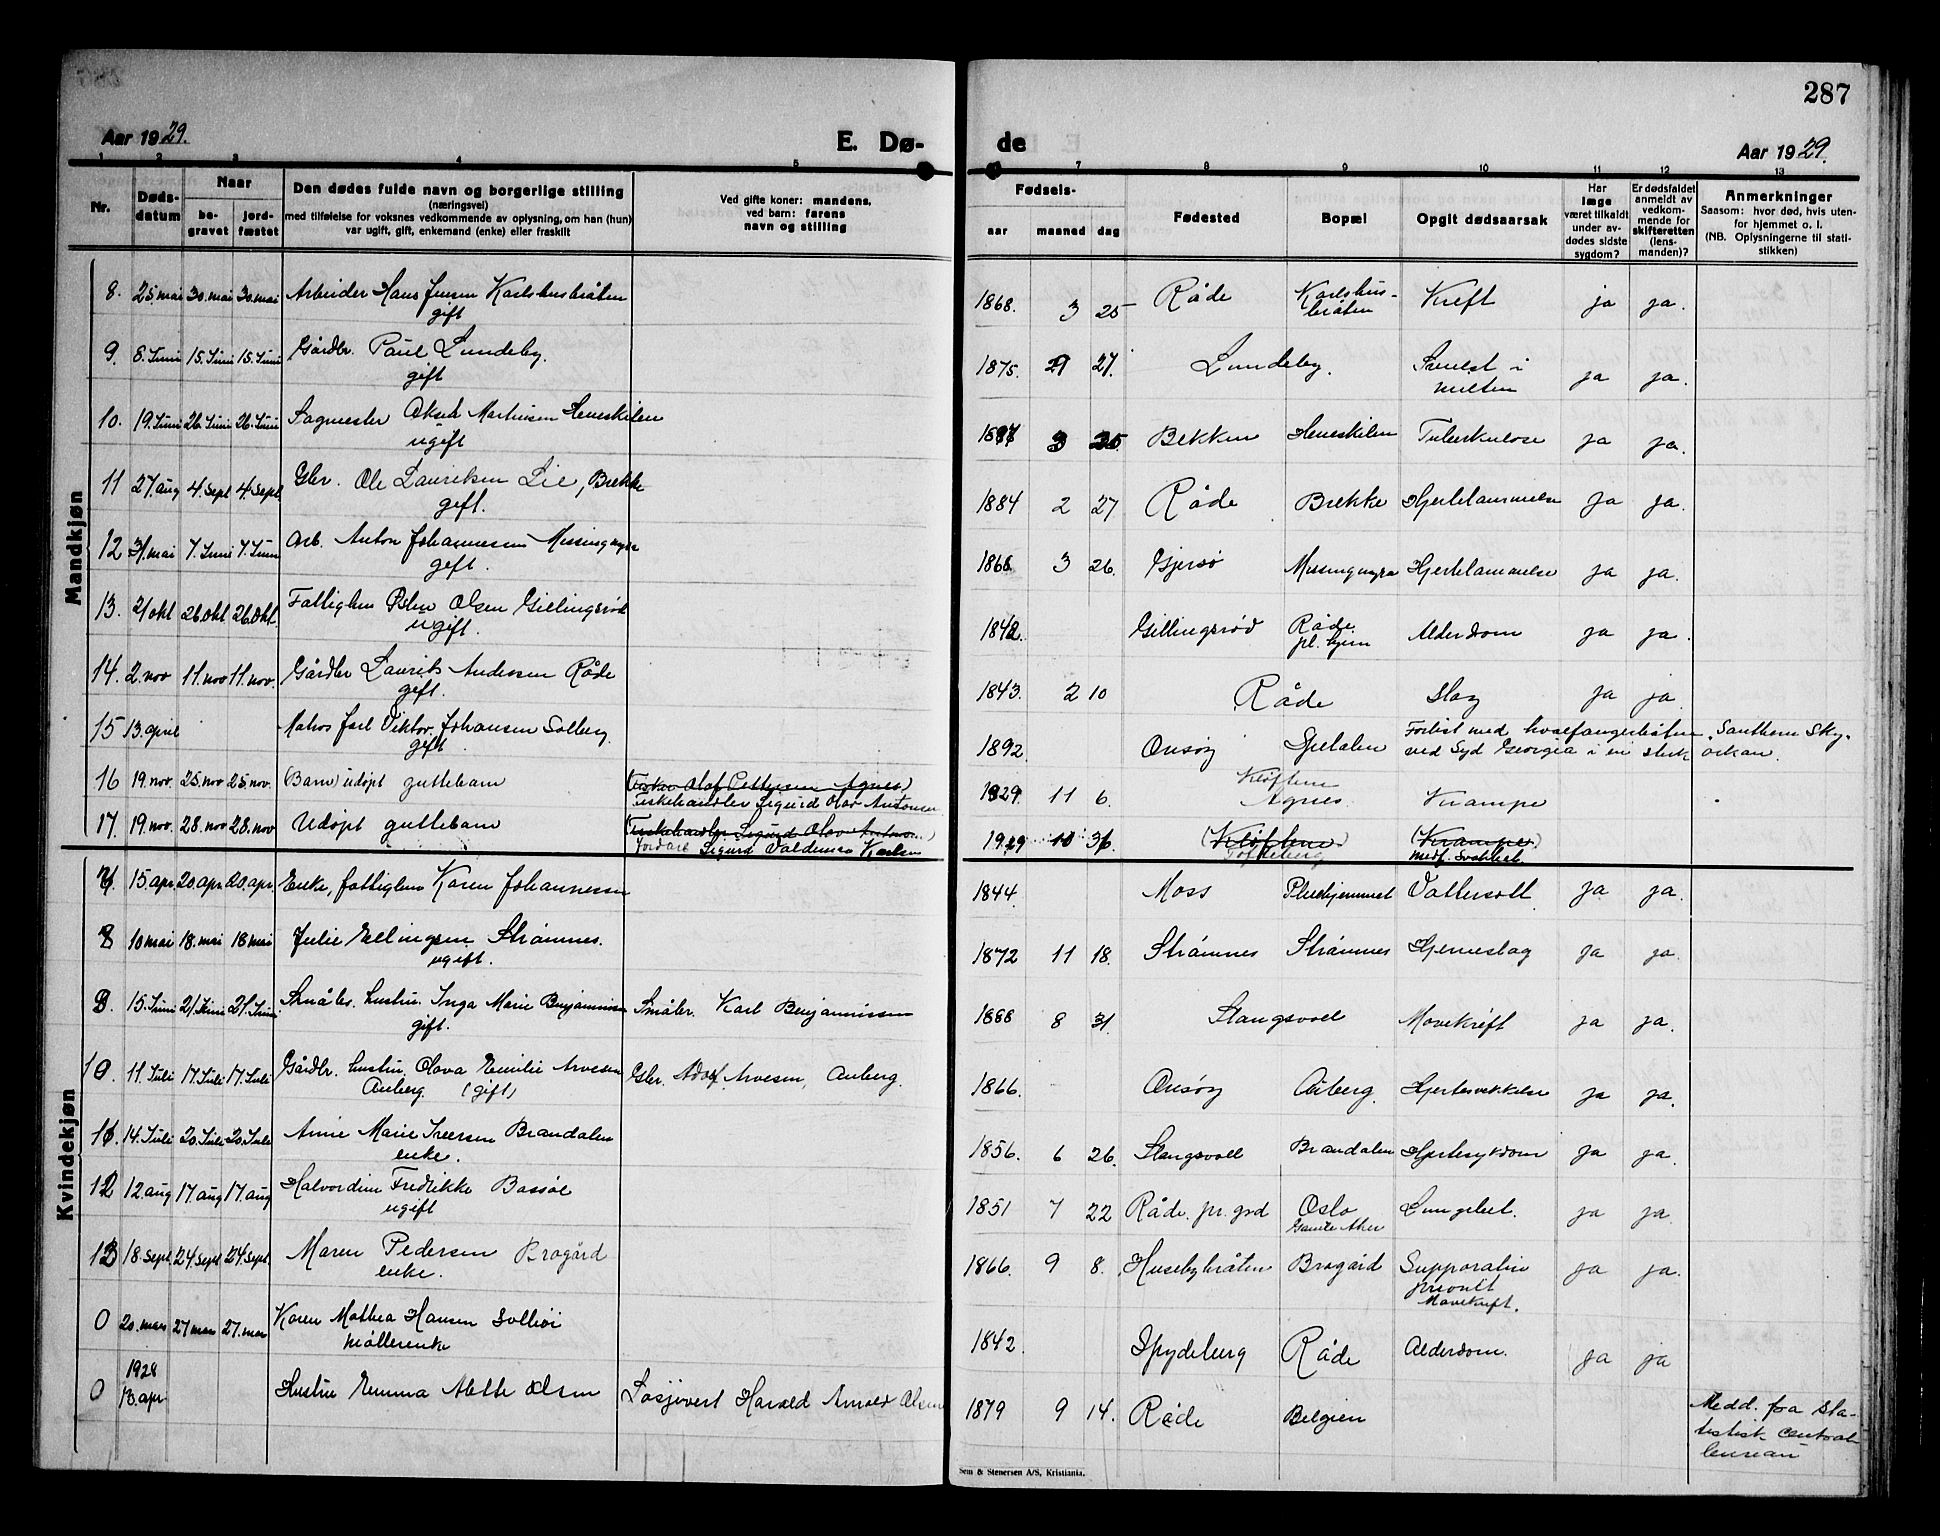 287
Aar 1929.
E. Dø-
de
Aar 1929.
1 2 3 4 5 7 8 9 10 11 12 13
Nr.
Døds-
datum
Naar
be-
gravet
jord-
fæstet
Den dødes fulde navn og borgerlige stilling
(næringsvei)
med tilføielse for voksnes vedkommende av oplysning, om han (hun)
var ugift, gift, enkemand (enke) eller fraskilt
Ved gifte koner: mandens,
ved barn: farens
navn og stilling
Fødsels-
aar maaned dag
Fødested
Bopæl
Opgit dødsaarsak
Har
læge
været tilkaldt
under av-
dødes sidste
sygdom?
Er dødsfaldet
anmeldt av
vedkom-
mende for
skifteretten
(lens-
manden)?
Anmerkninger
Saasom: hvor død, hvis uten-
for hjemmet o. l.
(NB. Oplysningerne til stati-
stikken)
Mandkjøn
8. 25. mai 30. mai 30. mai Arbeider Hans Jensen Karlshusbråten
gift
1868. 3 25 Råde Karlshus-
bråten Kreft ja ja.
9. 8. Juni 15. Juni 15. Juni Gårdbr. Paul Lundeby.
gift
1875. 27. Lundeby. Svulst i
milten ja ja.
10. 19. Juni 26. Juni 26. Juni Sagmester Aksel Martinsen Heneskilen
ugift
3 Bekken Heneskilen Tuberkulose ja ja.
11 27. aug 4. sept 4. sept Gbr. Ole Lauritsen Lie, Brekke
gift.
1884 2 27 Råde Brekke Hjertelammelse ja ja.
12 31. mai 7. Juni 7. Juni Arb. Anton Johannessen Missingmyra
gift.
1868 3 26. Missingmyra Hjertelammelse ja ja.
13. 21 okt 26. okt 26. okt. Fattiglem Olsen Gillingsrød
ugift.
1842. Gillingsrød Råde
pl. hjem Alderdom ja ja.
14. 2. nov 11. nov 11. nov. Gårdbr Laurits Andersen Råde
gift.
1843. 2 10 Råde Slag ja ja.
15 13. april Matros Karl Viktor Johansen Solberg.
gift
1892. Onsøy Spetalen Forlist med hvalfangerbåten "Southern Sky"
ved Syd Georgia i en sterk orkan.
16 19. nov. 25. nov 25. nov. (Barn) udøpt guttebarn (Fisker Olaf Pettersen Agnes)
Fiskehandler Sigurd Olav Antonsen
1929 11 6. Kløften
Agnes. Krampe
17. 19. nov. 28. nov 28. nov Udøpt guttebarn (Fiskehandler Sigurd Olav Antonsen)
Jordarb Sigurd Valdemar Karlsen
1929 10 (Kløften) (Krampe)
medf. Svakhet
Kvindekjøn
7. 15. apr. 20. apr. 20. apr Enke, fattiglem Karen Johannessen
1844. Moss Pleiehjemmet Vattersott ja ja.
8 10 mai 18. mai 18 mai Julie Ellingsen Strømnes.
ugift.
1872 11 18. Strømnes Strømnes Hjerneslag ja ja.
15. Juni 21. Juni 21. Juni Småbr. hustru. Inga Marie Benjaminsen
gift. Småbr. Karl Benjaminsen
1888 8 31 Slangsvoll Mavekreft ja ja.
10. 11. Juli 17. Juli 17. Juli Gårdbr. hustru. Olava Emilie Arvesen
Auberg. (gift) Gbr. Adolf Arvesen, Auberg.
1866. Onsøy Auberg. Hjertesvekkelse ja ja.
11. 14. Juli 20. Juli 20. Juli Anne Marie Iversen Brandalen
enke.
1856. 6 26. Slangsvoll Brandalen Hjertesykdom ja ja.
12 12. aug 17. aug 17. aug Halvordine Fredrikke Bossøe
ugift
1851 7 22 Råde. pr. grd Oslo
Gamle Aker Lungebet. ja ja.
13 18. sept. 24. sept 24. sept. Maren Pedersen Brogård
enke.
1866. 9 8. Husebybråten Brogård
Mavekreft. ja ja.
0 20. mars 27 mar 27. mar Karen Mathea Hansen Solhøi
Møllerenke
1842. Spydeberg Råde Alderdom. ja ja
0 1928
13. apr Hustru Emma Alette Olsen Losjevert Harald Arnold Olsen
1879 9 14. Råde Belgien Medd. fra Sta-
tistisk Central
bureau
Sem & Stenersen A/S, Kristiania.